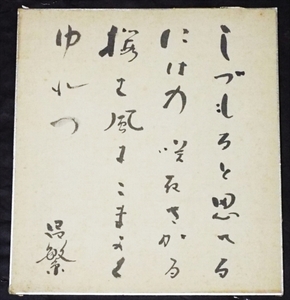 しづもると思へる
にはの咲きさかる
桜は風にこまかく
ゆれつ